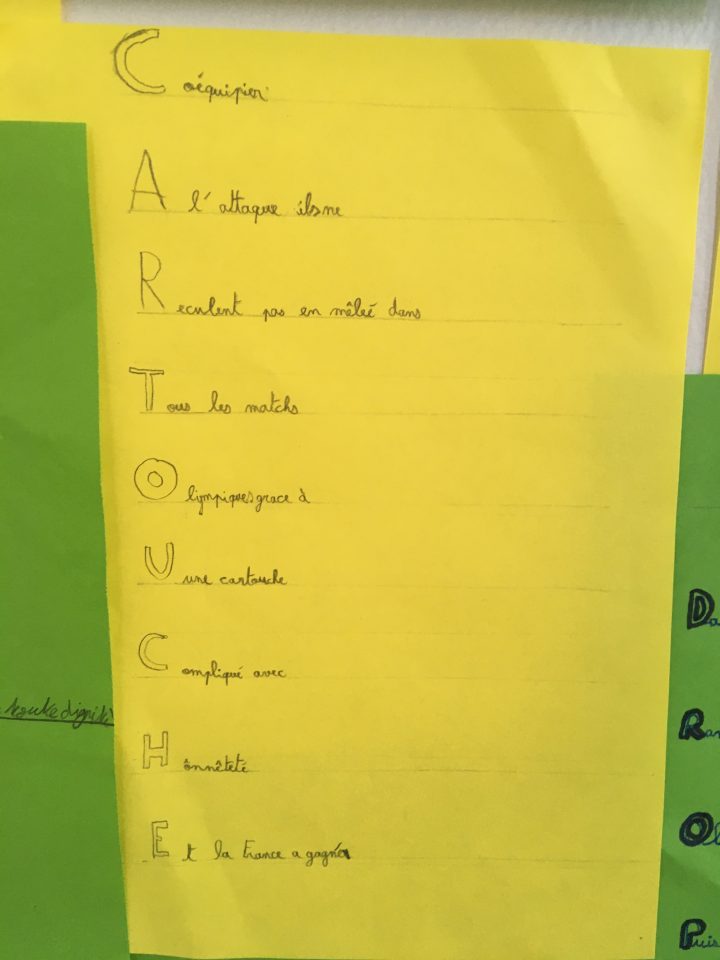 Coéquipier
A l'attaque ils ne
Reculent pas en mêleé dans
Tous les matchs
Olympiques grace à
Uune cartouche
Compliqué avec
Hônnêteté
Et la France a gagné
D
R
Ol
Puis